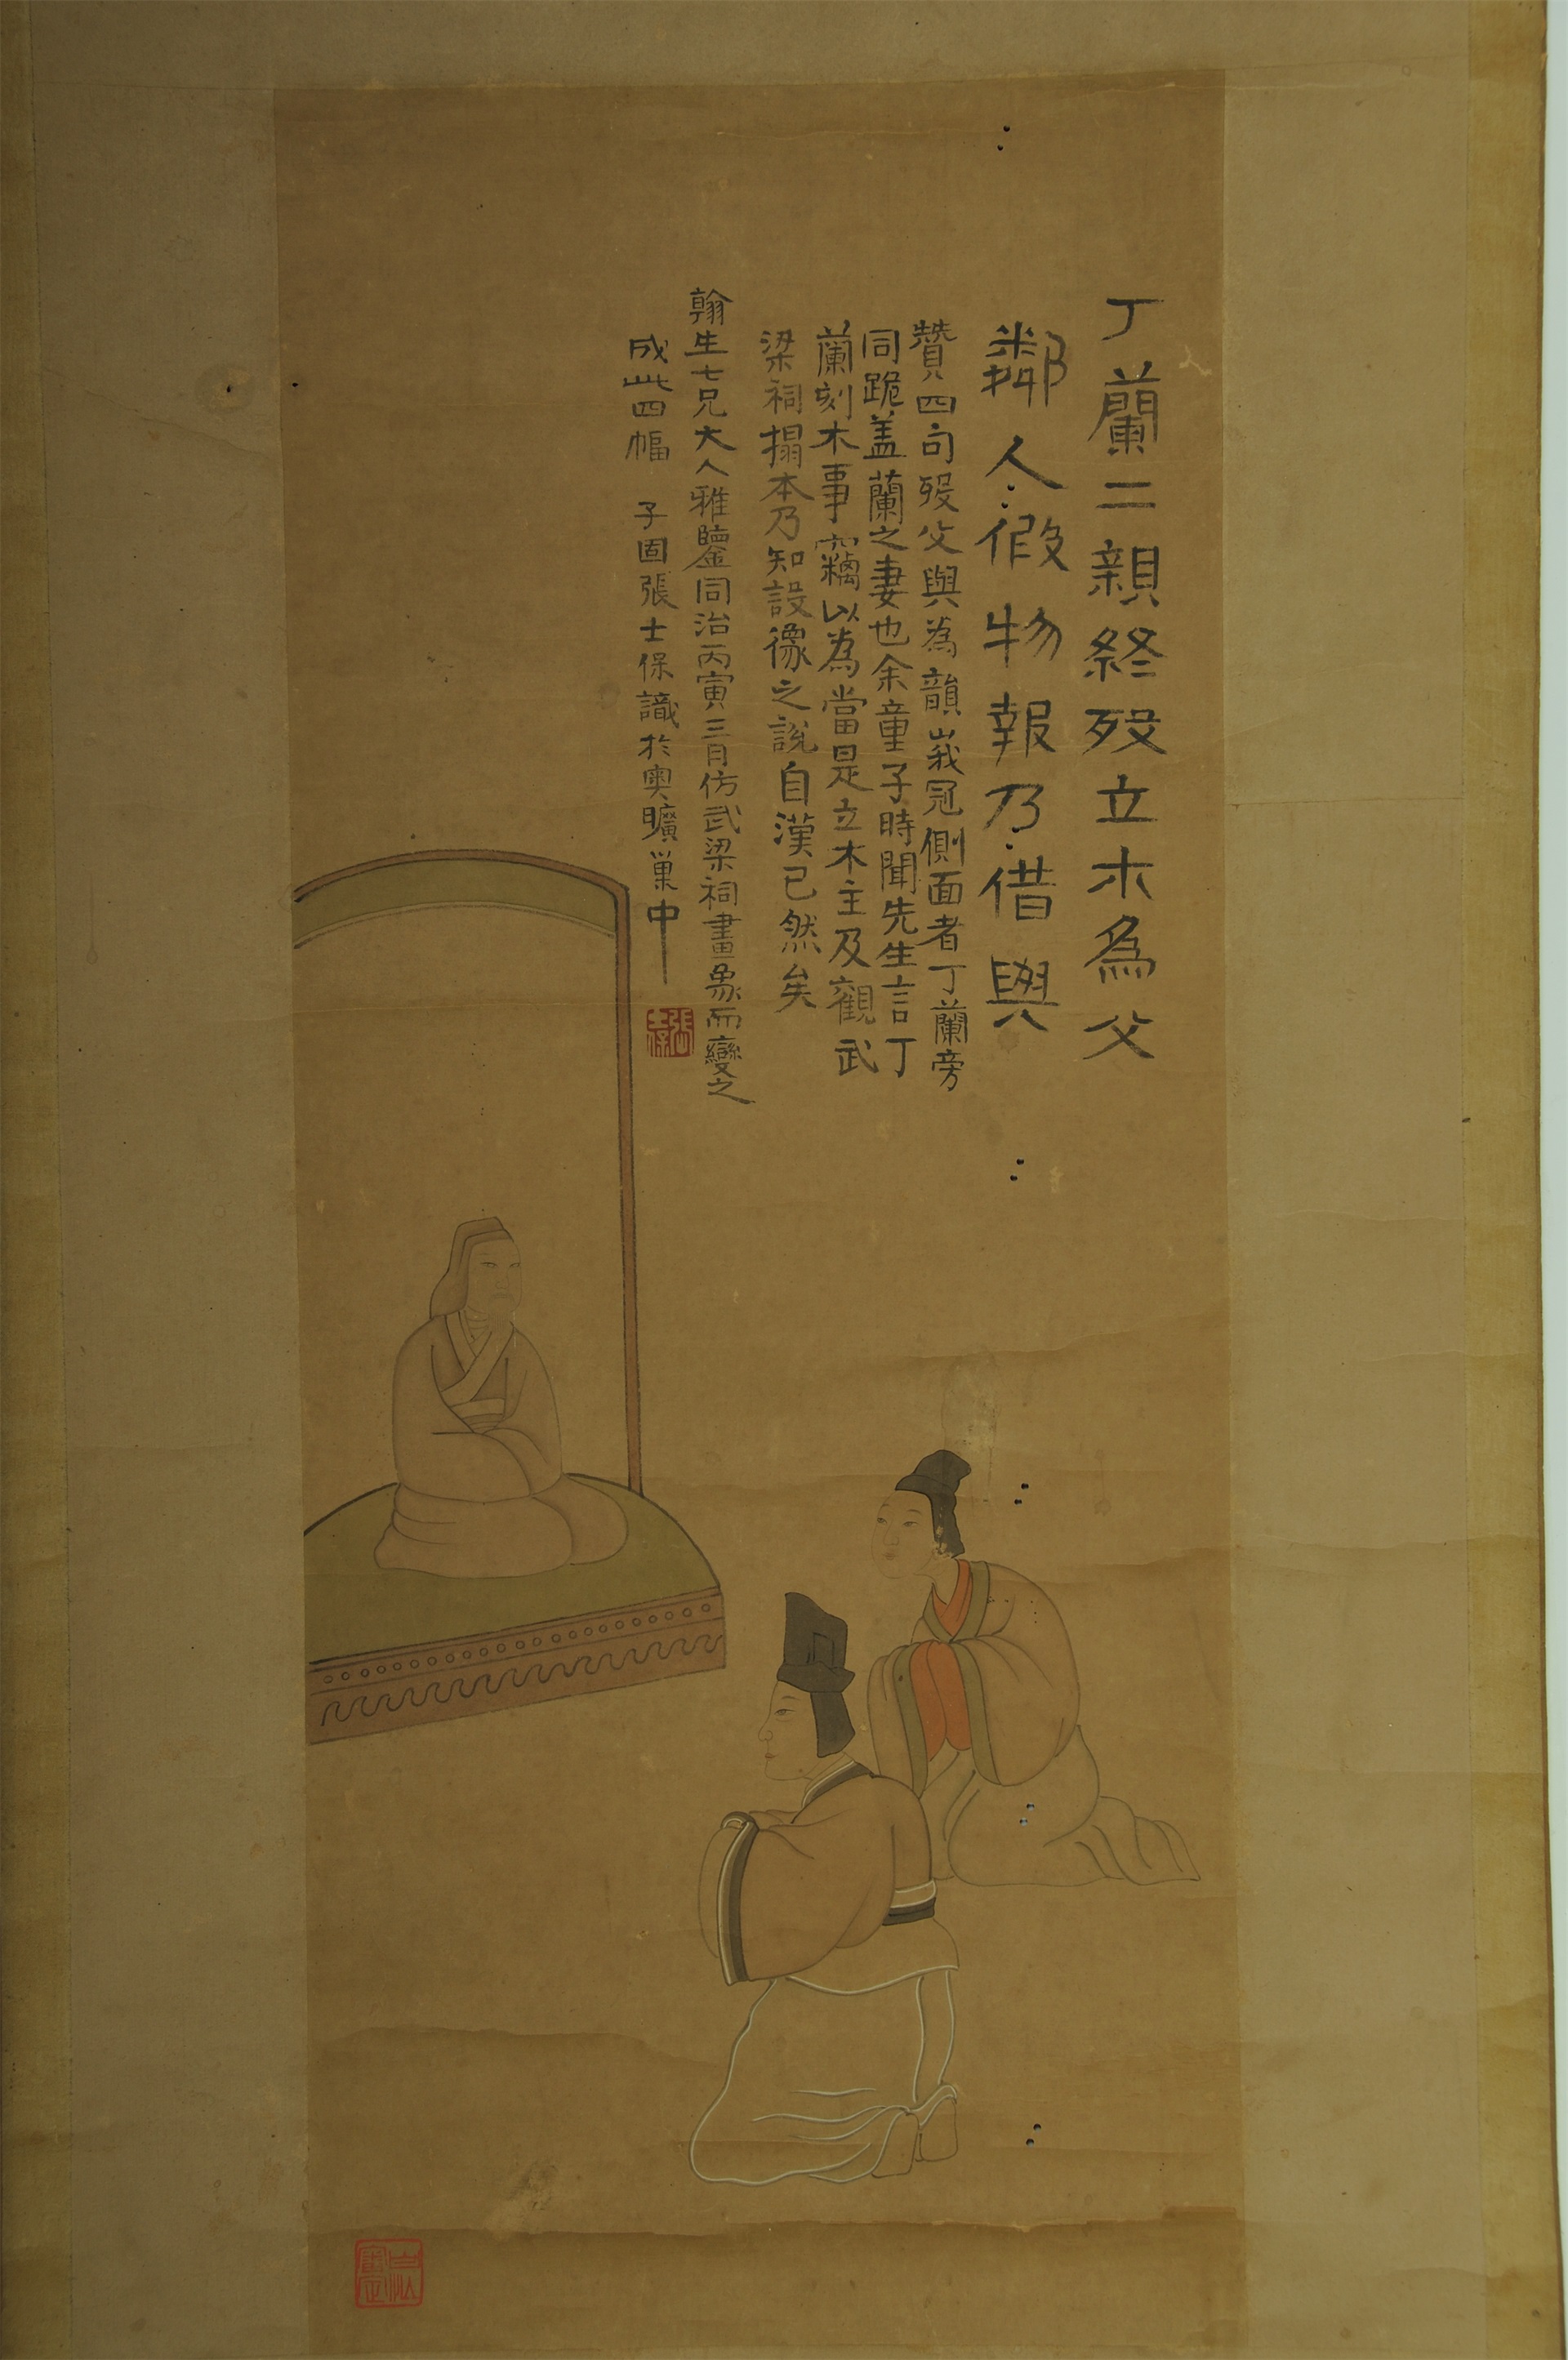 丁蘭二親終歿立木為父
鄰人假物報乃借與
贊四句歿父與為韻峩冠側面者丁蘭旁
同跪盖蘭之妻也余童子時聞先生言丁
蘭刻木事竊以為當是立木主及觀武
梁祠搨本乃知設像之說自漢已然矣
翰生七兄大人雅鑒同治丙寅三月仿武梁祠畫象而變之
成此四幅 子固張士保識於奧曠巢中